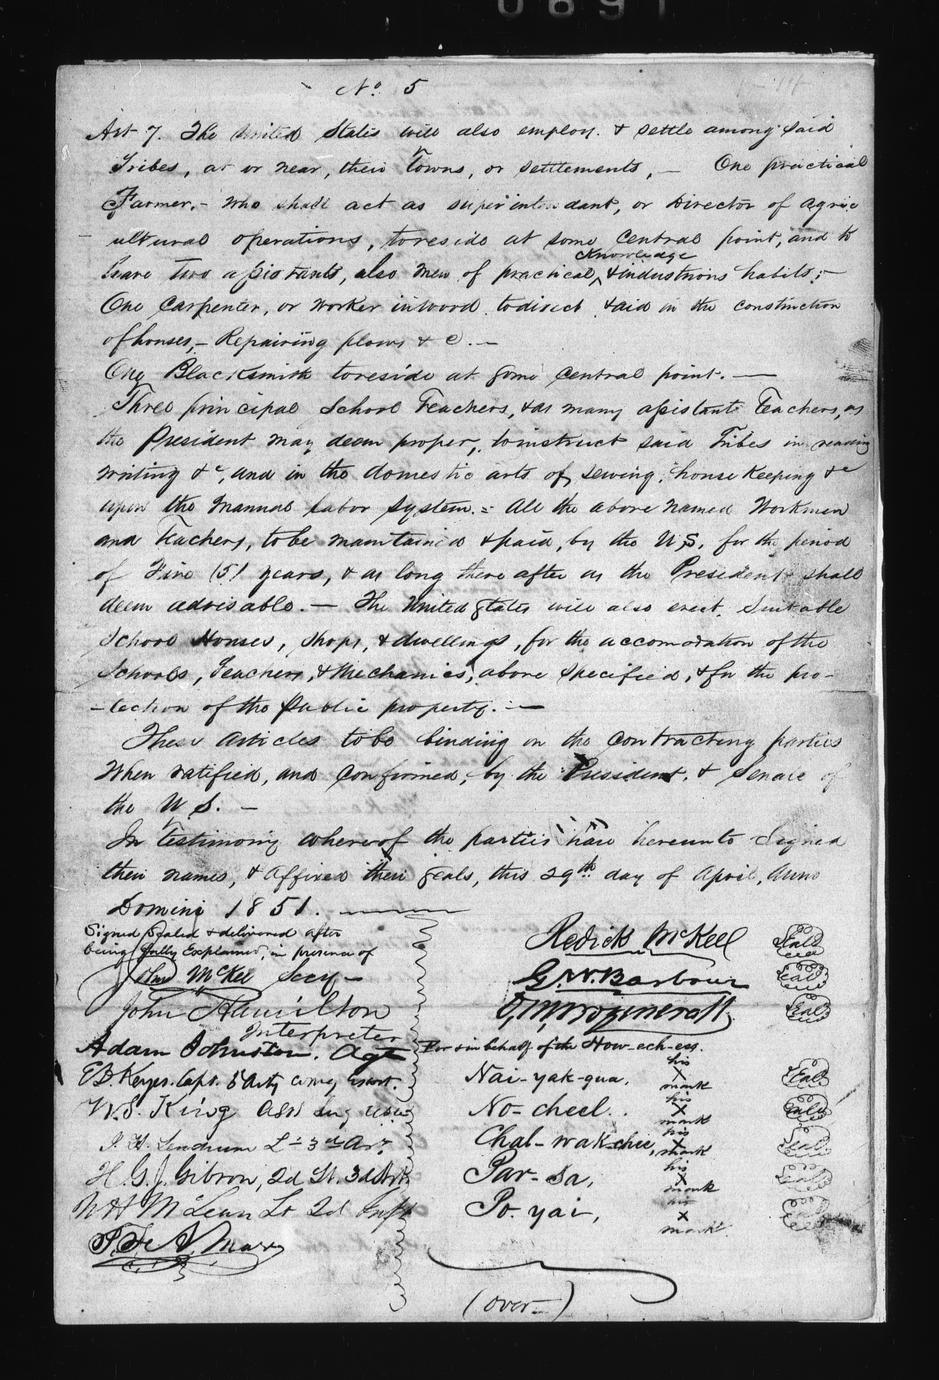 0691
No. 5
Art 7. The United States will also employ. & settle among said
Tribes, at or near, their Towns, or settlements, — One practical
Farmer, - who shall act as superintendant, or Director of agric
- ultural operations, to reside at some central point, and to
knowledge
have two assistants, also men of practical, ^ & industrious habits; -
One Carpenter, or worker in wood to direct & aid in the construction
of houses, - Repairing plows & C. -
One Blacksmith to reside at some central point. —
Three principal School Teachers, & as many assistants Teachers, as
the President may deem proper, to instruct said Tribes in reading
writing &c, and in the domestic arts of sewing, house keeping &c
upon the manual labor system. = All the above named Workmen
and Teachers, to be maintained & paid, by the U.S. for the period
of Five (5) years, & as long there after as the President shall
deem advisable. — The United States will also erect Suitable
School Houses, Shops, & dwellings, for the accomodation of the
Schools, Teachers, & Mechanics, above specified, & for the pro-
-tection of the Public property. —
These articles to be binding on the contracting parties
When ratified, and confirmed, by the President, & Senate of
the U S. —
In testimony whereof the parties have hereunto Signed
their names, & affixed their Seals, this 29th day of April, Anno
Domini 1851. —
Signed Sealed & delivered after
being fully Explained, in presence of
John McKee Secy -
John Hamilton
Interpreter
Adam Johnston. Agt
E D. Keyes. Capt. 3d Arty comdg Escort.
W.S. King Asst Surg USA
J. H. Lendrum Lt 3rd Arty
H. G. J. Gibson, 2d Lt. 3d Arty
N H McLean Lt 2d Infy
Redick McKee Seal
G. W. Barbour Seal
O. M. Wozencraft Seal
For & in behalf of the How-ech-ees.
Nai-yak-qua. his X mark Seal
No-cheel. his X mark Seal
Chal-wak-chee, his X mark Seal
Par-sa, his X mark Seal
Po-yai, his X mark Seal
(over—)